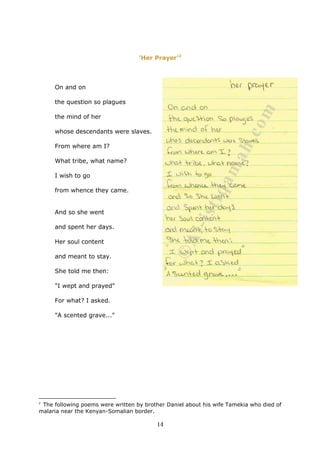 'Her Prayer'²
On and on
the question so plagues
the mind of her
whose descendants were slaves.
From where am I?
What tribe, what name?
I wish to go
from whence they came.
And so she went
and spent her days.
Her soul content
and meant to stay.
She told me then:
"I wept and prayed"
For what? I asked.
"A scented grave..."
her prayer
On and on
the question so plagues
the mind of her
whos descendants was slaves
from where am I?
What tribe, what name?
I wish to go
from whence they came
and so she went
and spent her days
her soul content
and meant to stay
She told me then:
"I wept and prayed"
for what? I asked
"A scented grave...."
² The following poems were written by brother Daniel about his wife Tamekia who died of
malaria near the Kenyan-Somalian border.
14